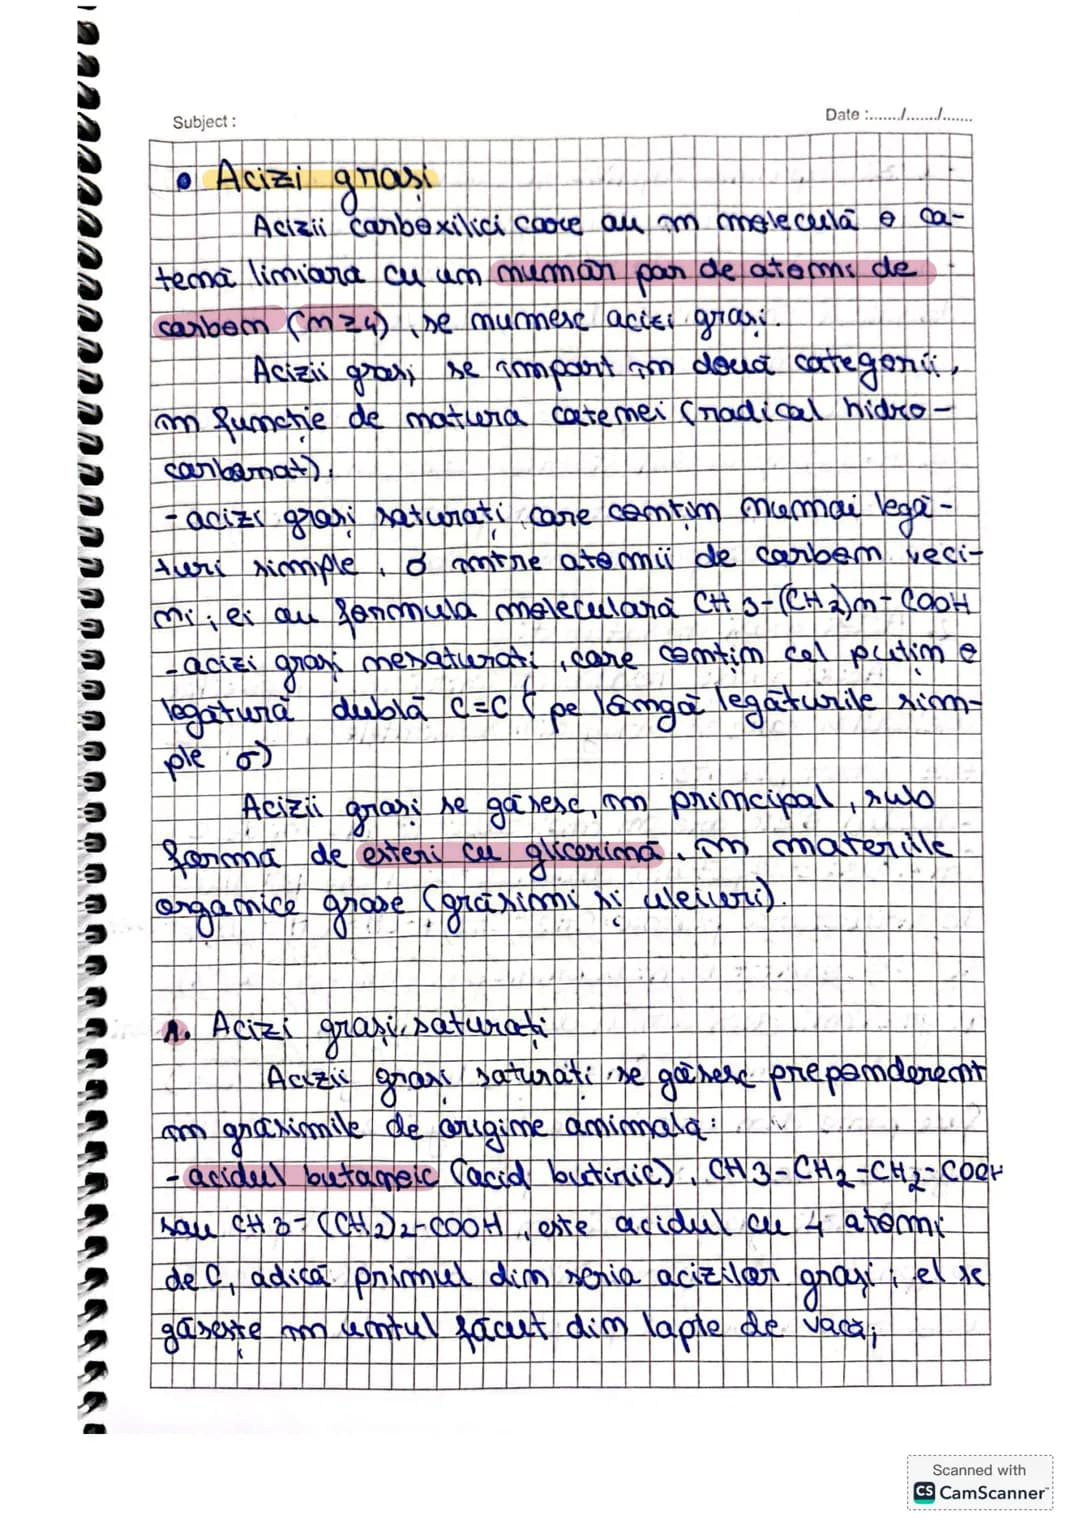 Subject :
Date :....../....../......
Acizi grași
Acizii carboxilici care au în moleculă o ca-
tenă liniara cu un număr par de atomi de
carbon (n≥4), se numesc acizi grași.
Acizii grași se împart în două categorii,
în funcție de natura catenei (radical hidro-
carbonat):
-acizi grași saturați, care conțin numai legă-
turi simple, σ între atomii de carbon veci-
ni; ei au formula moleculară CH3-(CH2)n-COOH
-acizi grași nesaturați, care conțin cel puțin o
legătură dublă C=C (pe lângă legăturile sim-
ple σ)
Acizii grași se găsesc, în principal, sub
formă de esteri cu glicerină, în materiile
organice grase (grăsimi și uleiuri).
A. Acizi grași saturați
Acizii grași saturați se găsesc preponderent
în grăsimile de origine animală:
-acidul butanoic (acid butiric), CH3-CH2-CH2-COOH
sau CH3-(CH2)2-COOH, este acidul cu 4 atomi
de C, adică primul din seria acizilor grași; el se
găsește în untul făcut din lapte de vacă;
Scanned with
CS CamScanner